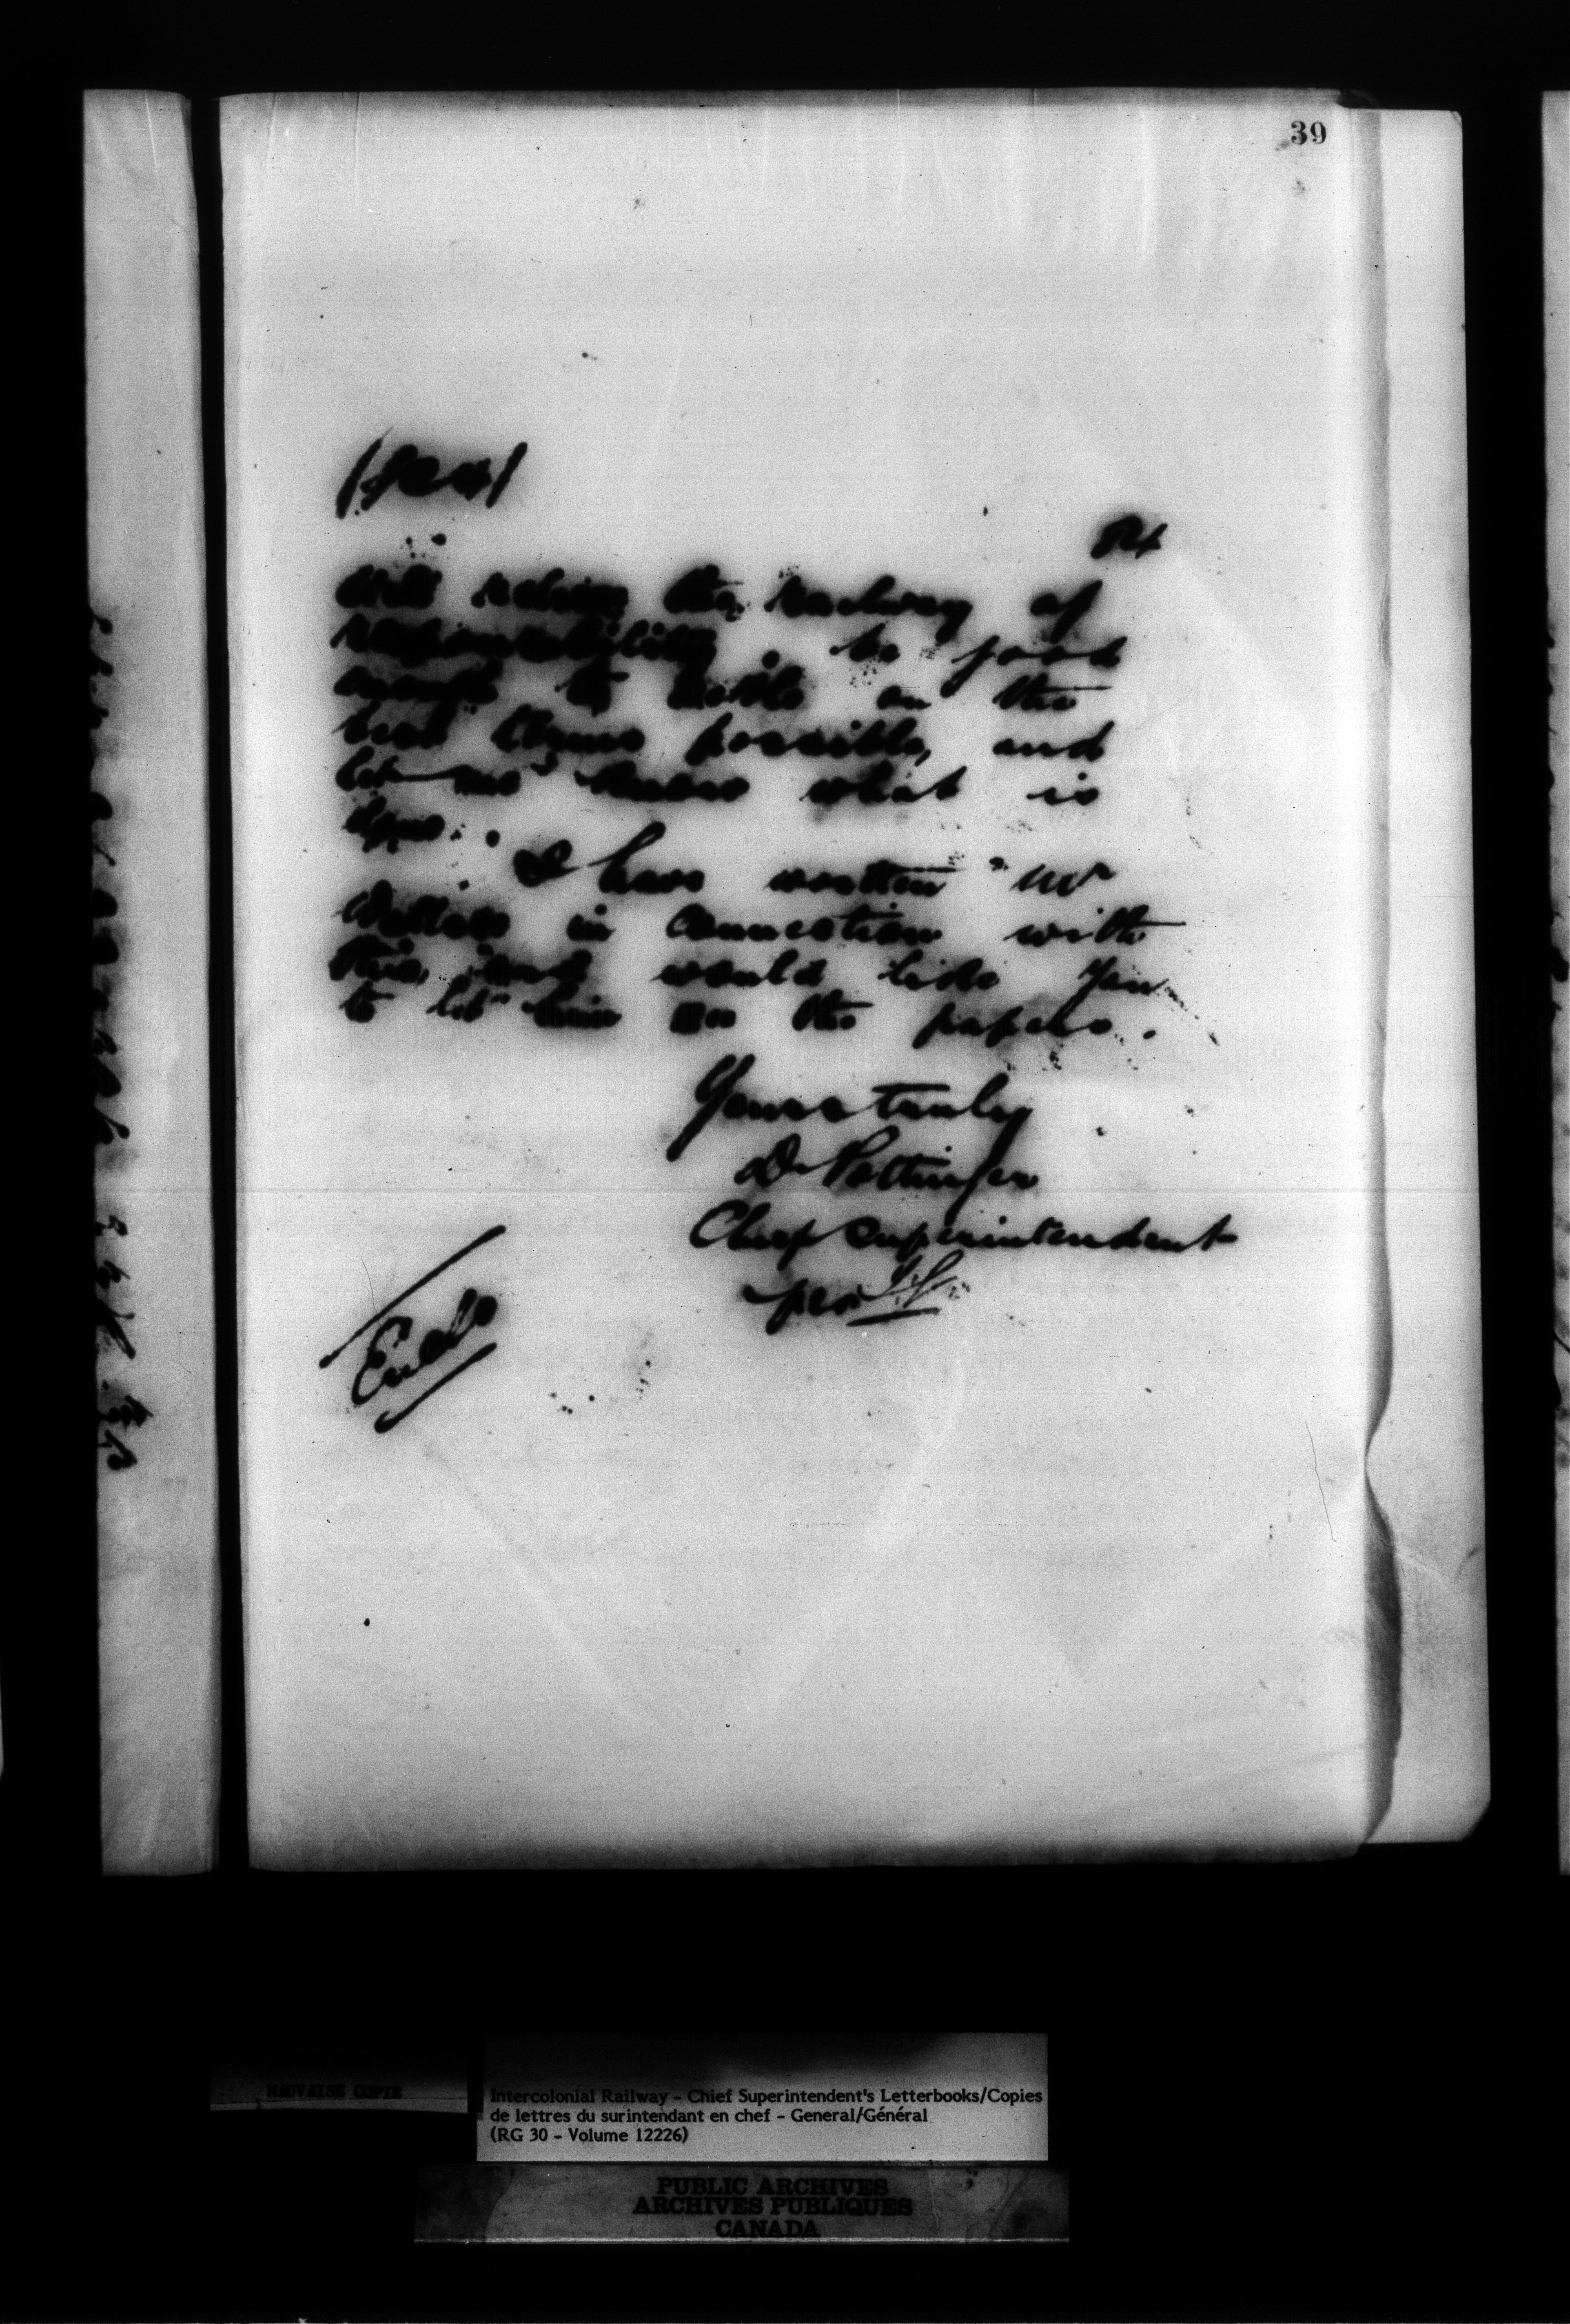 39
will relieve the railway of
responsibility. be good
enough to settle on the
best terms possible, and
let me know what is
done.
I have written Mr
Wallace in connection with
this, and would like you
to let him see the papers.
Yours truly
D Pottinger
Chief Superintendent
per
Encls
MAUVAISE COPIE
Intercolonial Railway - Chief Superintendent's Letterbooks/Copies
de lettres du surintendant en chef - General/Général
(RG 30 - Volume 12226)
PUBLIC ARCHIVES
ARCHIVES PUBLIQUES
CANADA